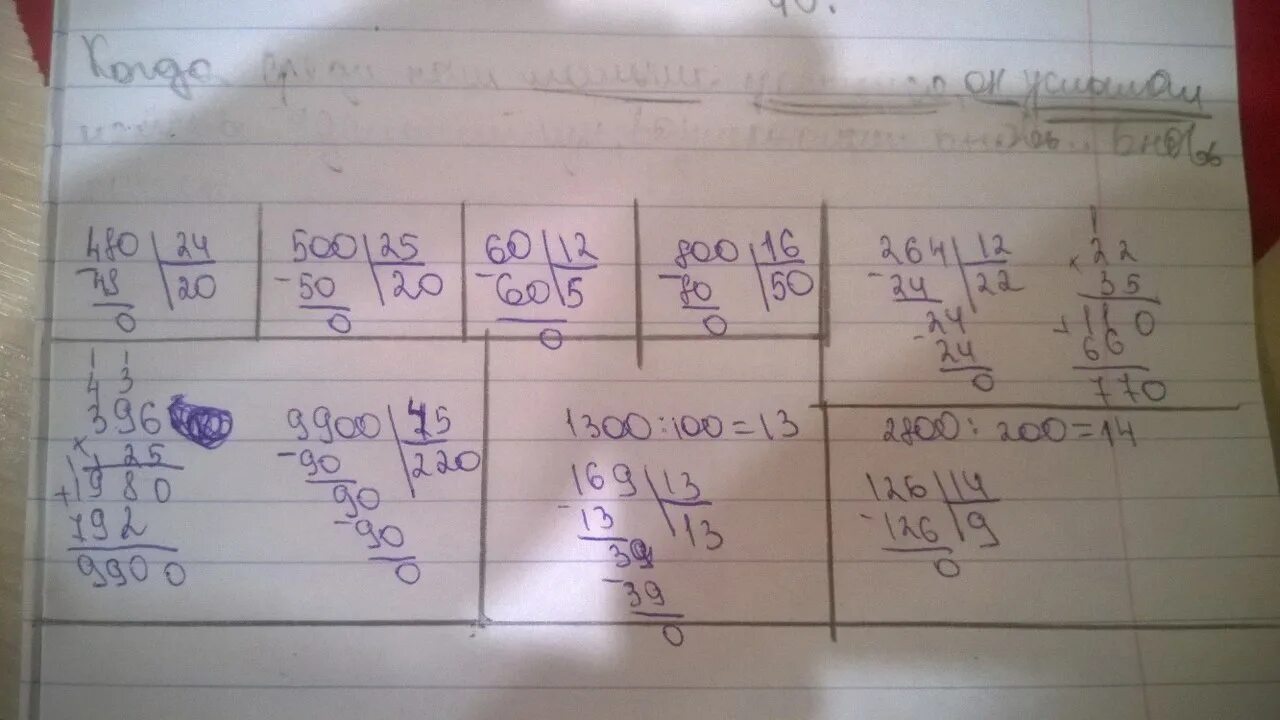 Когда он услышал
вновь
480 | 24
-48 | 20
0
500 | 25
-50 | 20
0
60 | 12
-60 | 5
0
800 | 16
-80 | 50
0
264 | 12
-24 | 22
24
-24
0
1
× 22
35
+110
66
770
1 1
4 3
396
× 25
+1980
792
9900
9900 | 45
-90 | 220
90
-90
0
1300 : 100 = 13
169 | 13
-13 | 13
39
-39
0
2800 : 200 = 14
126 | 14
-126 | 9
0